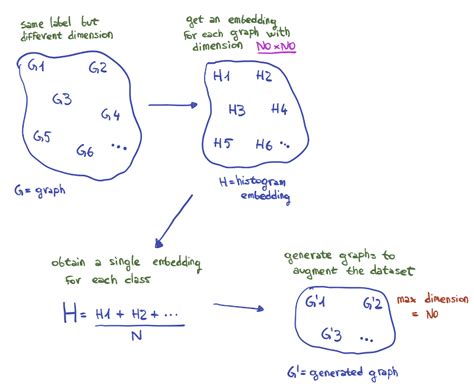 same label but
different dimension
G1 G2
G3
G4
G5
G6 ...
G = graph
get an embedding
for each graph with
dimension NO×NO
H1 H2
H3 H4
H5 H6 ...
H = histogram
embedding
obtain a single embedding
for each class
H = H1 + H2 + ...
N
generate graphs to
augment the dataset
G'1 G'2
G'3 ...
max dimension
= NO
G' = generated graph